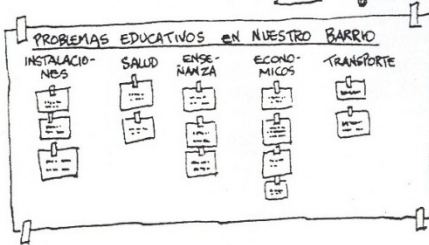 PROBLEMAS EDUCATIVOS EN NUESTRO BARRIO
INSTALACIO-
NES
SALUD
ENSE-
ÑANZA
ECONO-
MICOS
TRANSPORTE